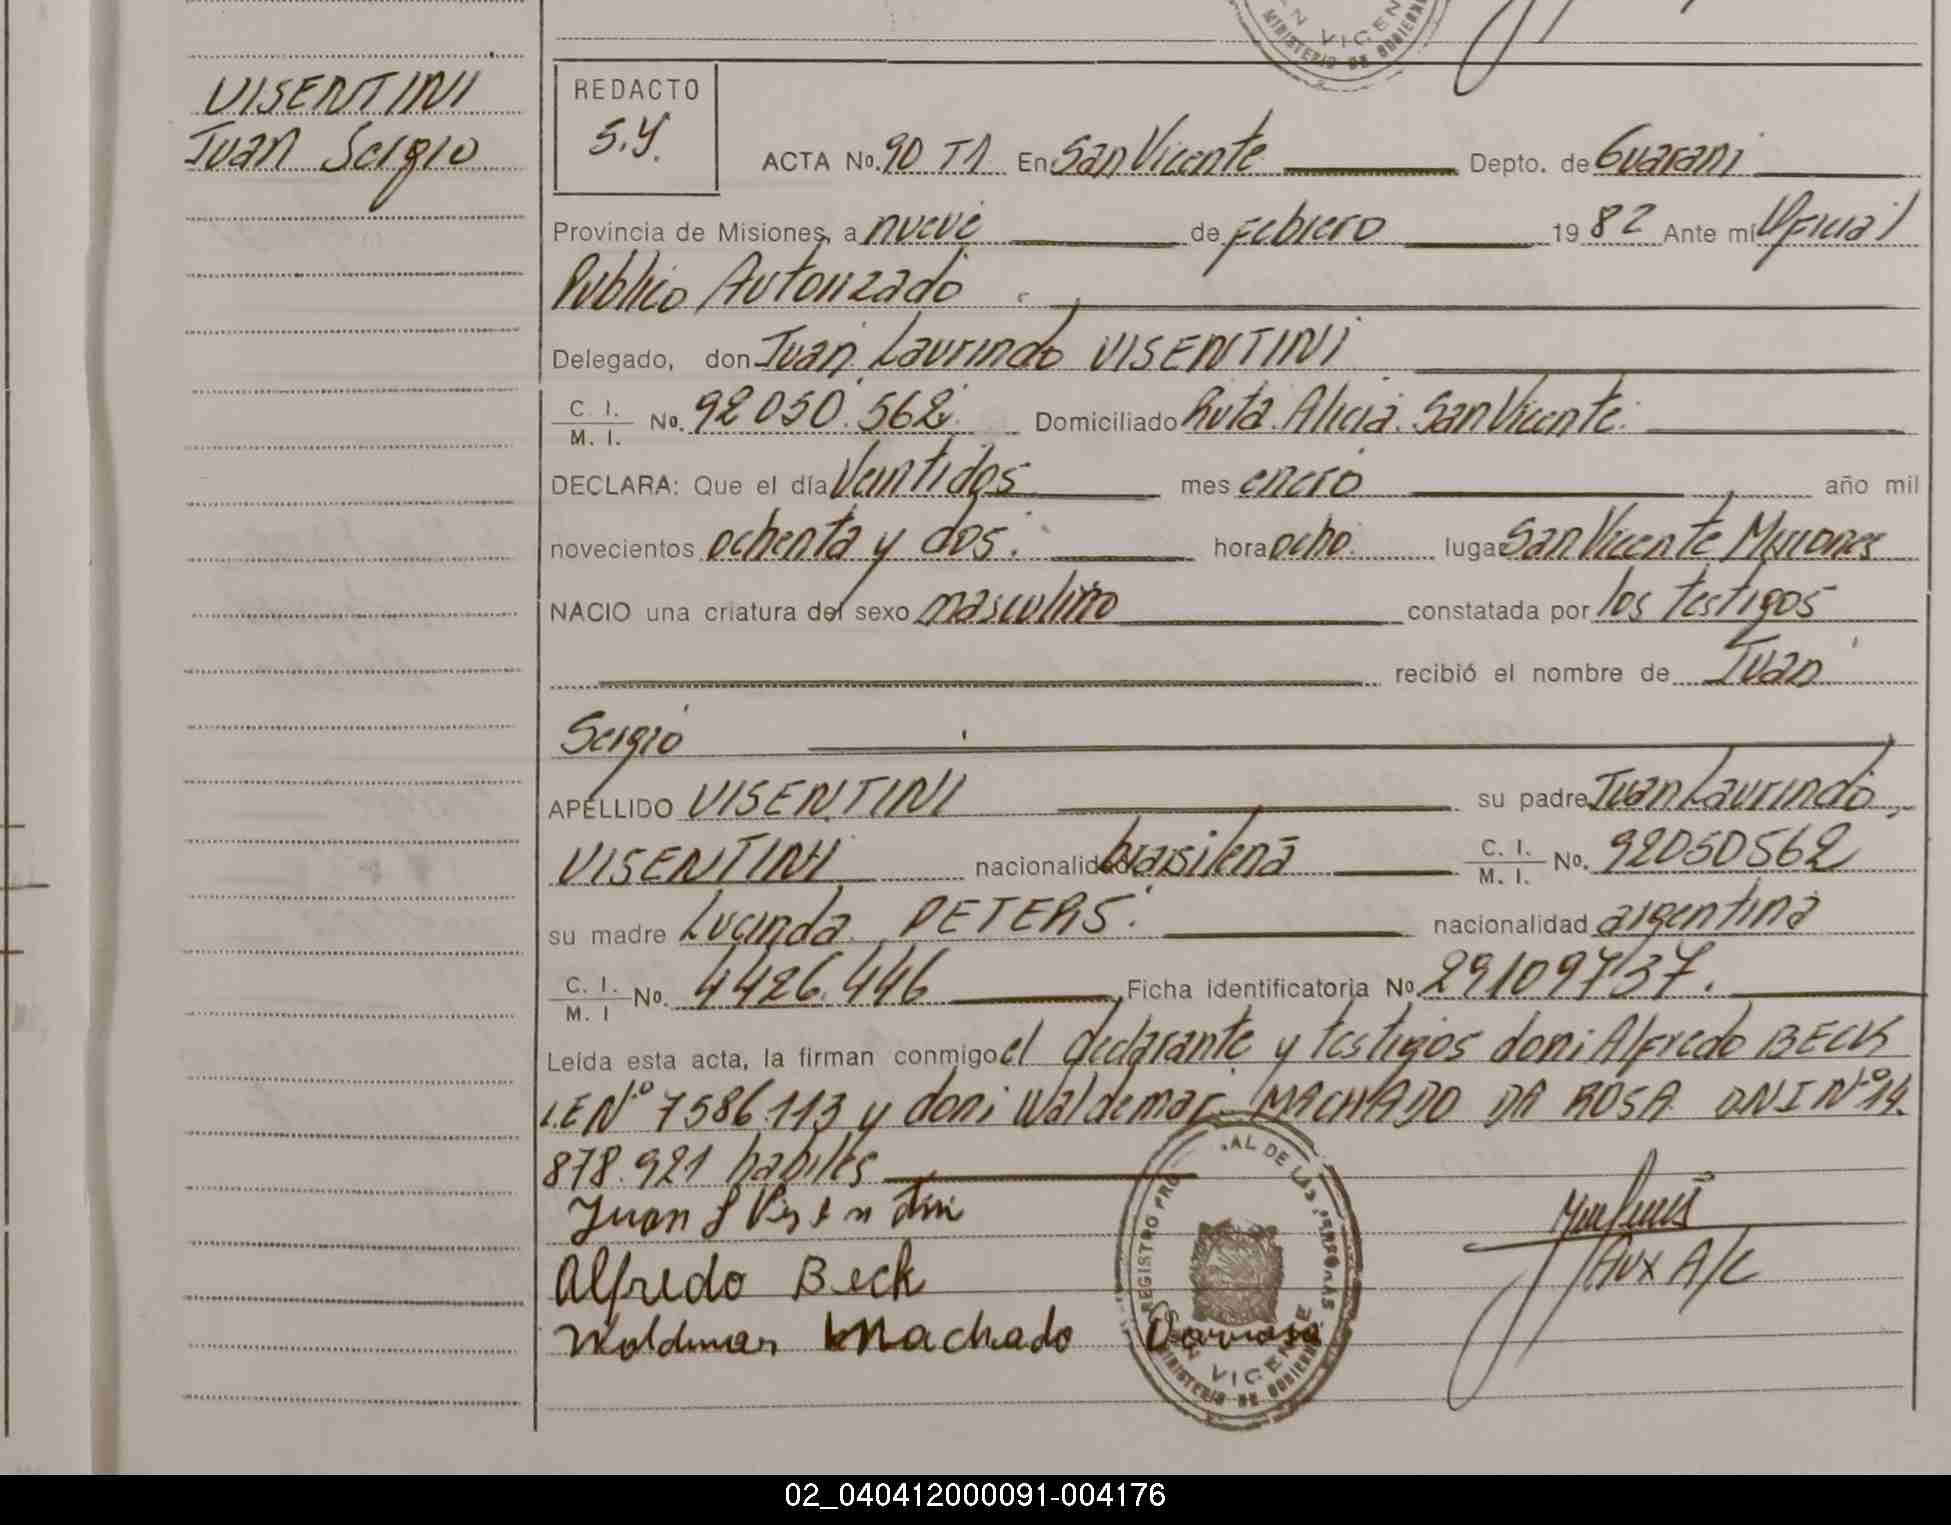 VISENTINI
Juan Sergio
REDACTO
S.Y.
ACTA No. 90 T1 En San Vicente Depto. de Guarani
Provincia de Misiones, a nueve de Febrero 1982 Ante mi Oficial
Publico Autorizado
Delegado, don Juan Laurindo VISENTINI
C. I. / M. I. No. 92050.562 Domiciliado Ruta Alicia. San Vicente.
DECLARA: Que el día Veintidos mes enero año mil
novecientos ochenta y dos. hora ocho. lugar San Vicente Misiones
NACIO una criatura del sexo masculino constatada por los testigos
recibió el nombre de Juan
Sergio
APELLIDO VISENTINI su padre Juan Laurindo
VISENTINI nacionalidad brasileña C. I. / M. I. No. 92050562
su madre Lucinda PETERS. nacionalidad argentina
C. I. / M. I No. 4426.446 Ficha identificatoria No 29109737.
Leída esta acta, la firman conmigo el declarante y testigos don: Alfredo BECK
L.E Nº 7586.113 y don: Waldemar MACHADO DA ROSA DNI Nº 14.
878.921 habiles
Juan L Visentini
Alfredo Beck
Woldemar Machado Darrosa
REGISTRO PRO AL DE LAS PERSONAS
SAN VICENTE
MINISTERIO DE GOBIERNO
Aux A/C
02_040412000091-004176